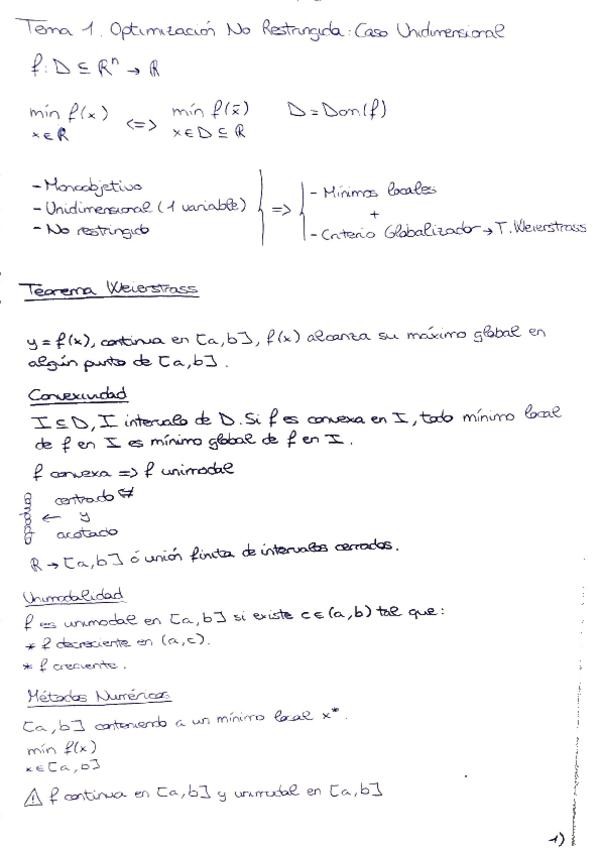 Tema 1. Optimización No Restringida: Caso Unidimensional
f: D ⊆ ℝⁿ → ℝ
min f(x) <=> min f(x̄) D = Dom(f)
x ∈ ℝ x ∈ D ⊆ ℝ
- Monoobjetivo
- Unidimensional (1 variable)
- No restringido
=>
- Mínimos locales
+
- Criterio Globalizador → T. Weierstrass
Teorema Weierstrass
y = f(x), continua en [a,b], f(x) alcanza su máximo global en
algún punto de [a,b].
Convexidad
I ⊆ D, I intervalo de D. Si f es convexa en I, todo mínimo local
de f en I es mínimo global de f en I.
f convexa => f unimodal
compacto ←
y
acotado
ℝ → [a,b] ó unión finita de intervalos cerrados.
Unimodalidad
f es unimodal en [a,b] si existe c ∈ (a,b) tal que:
* f decreciente en (a,c).
* f creciente.
Métodos Numéricos
[a,b] conteniendo a un mínimo local x*.
min f(x)
x ∈ [a,b]
⚠ f continua en [a,b] y unimodal en [a,b]
1)